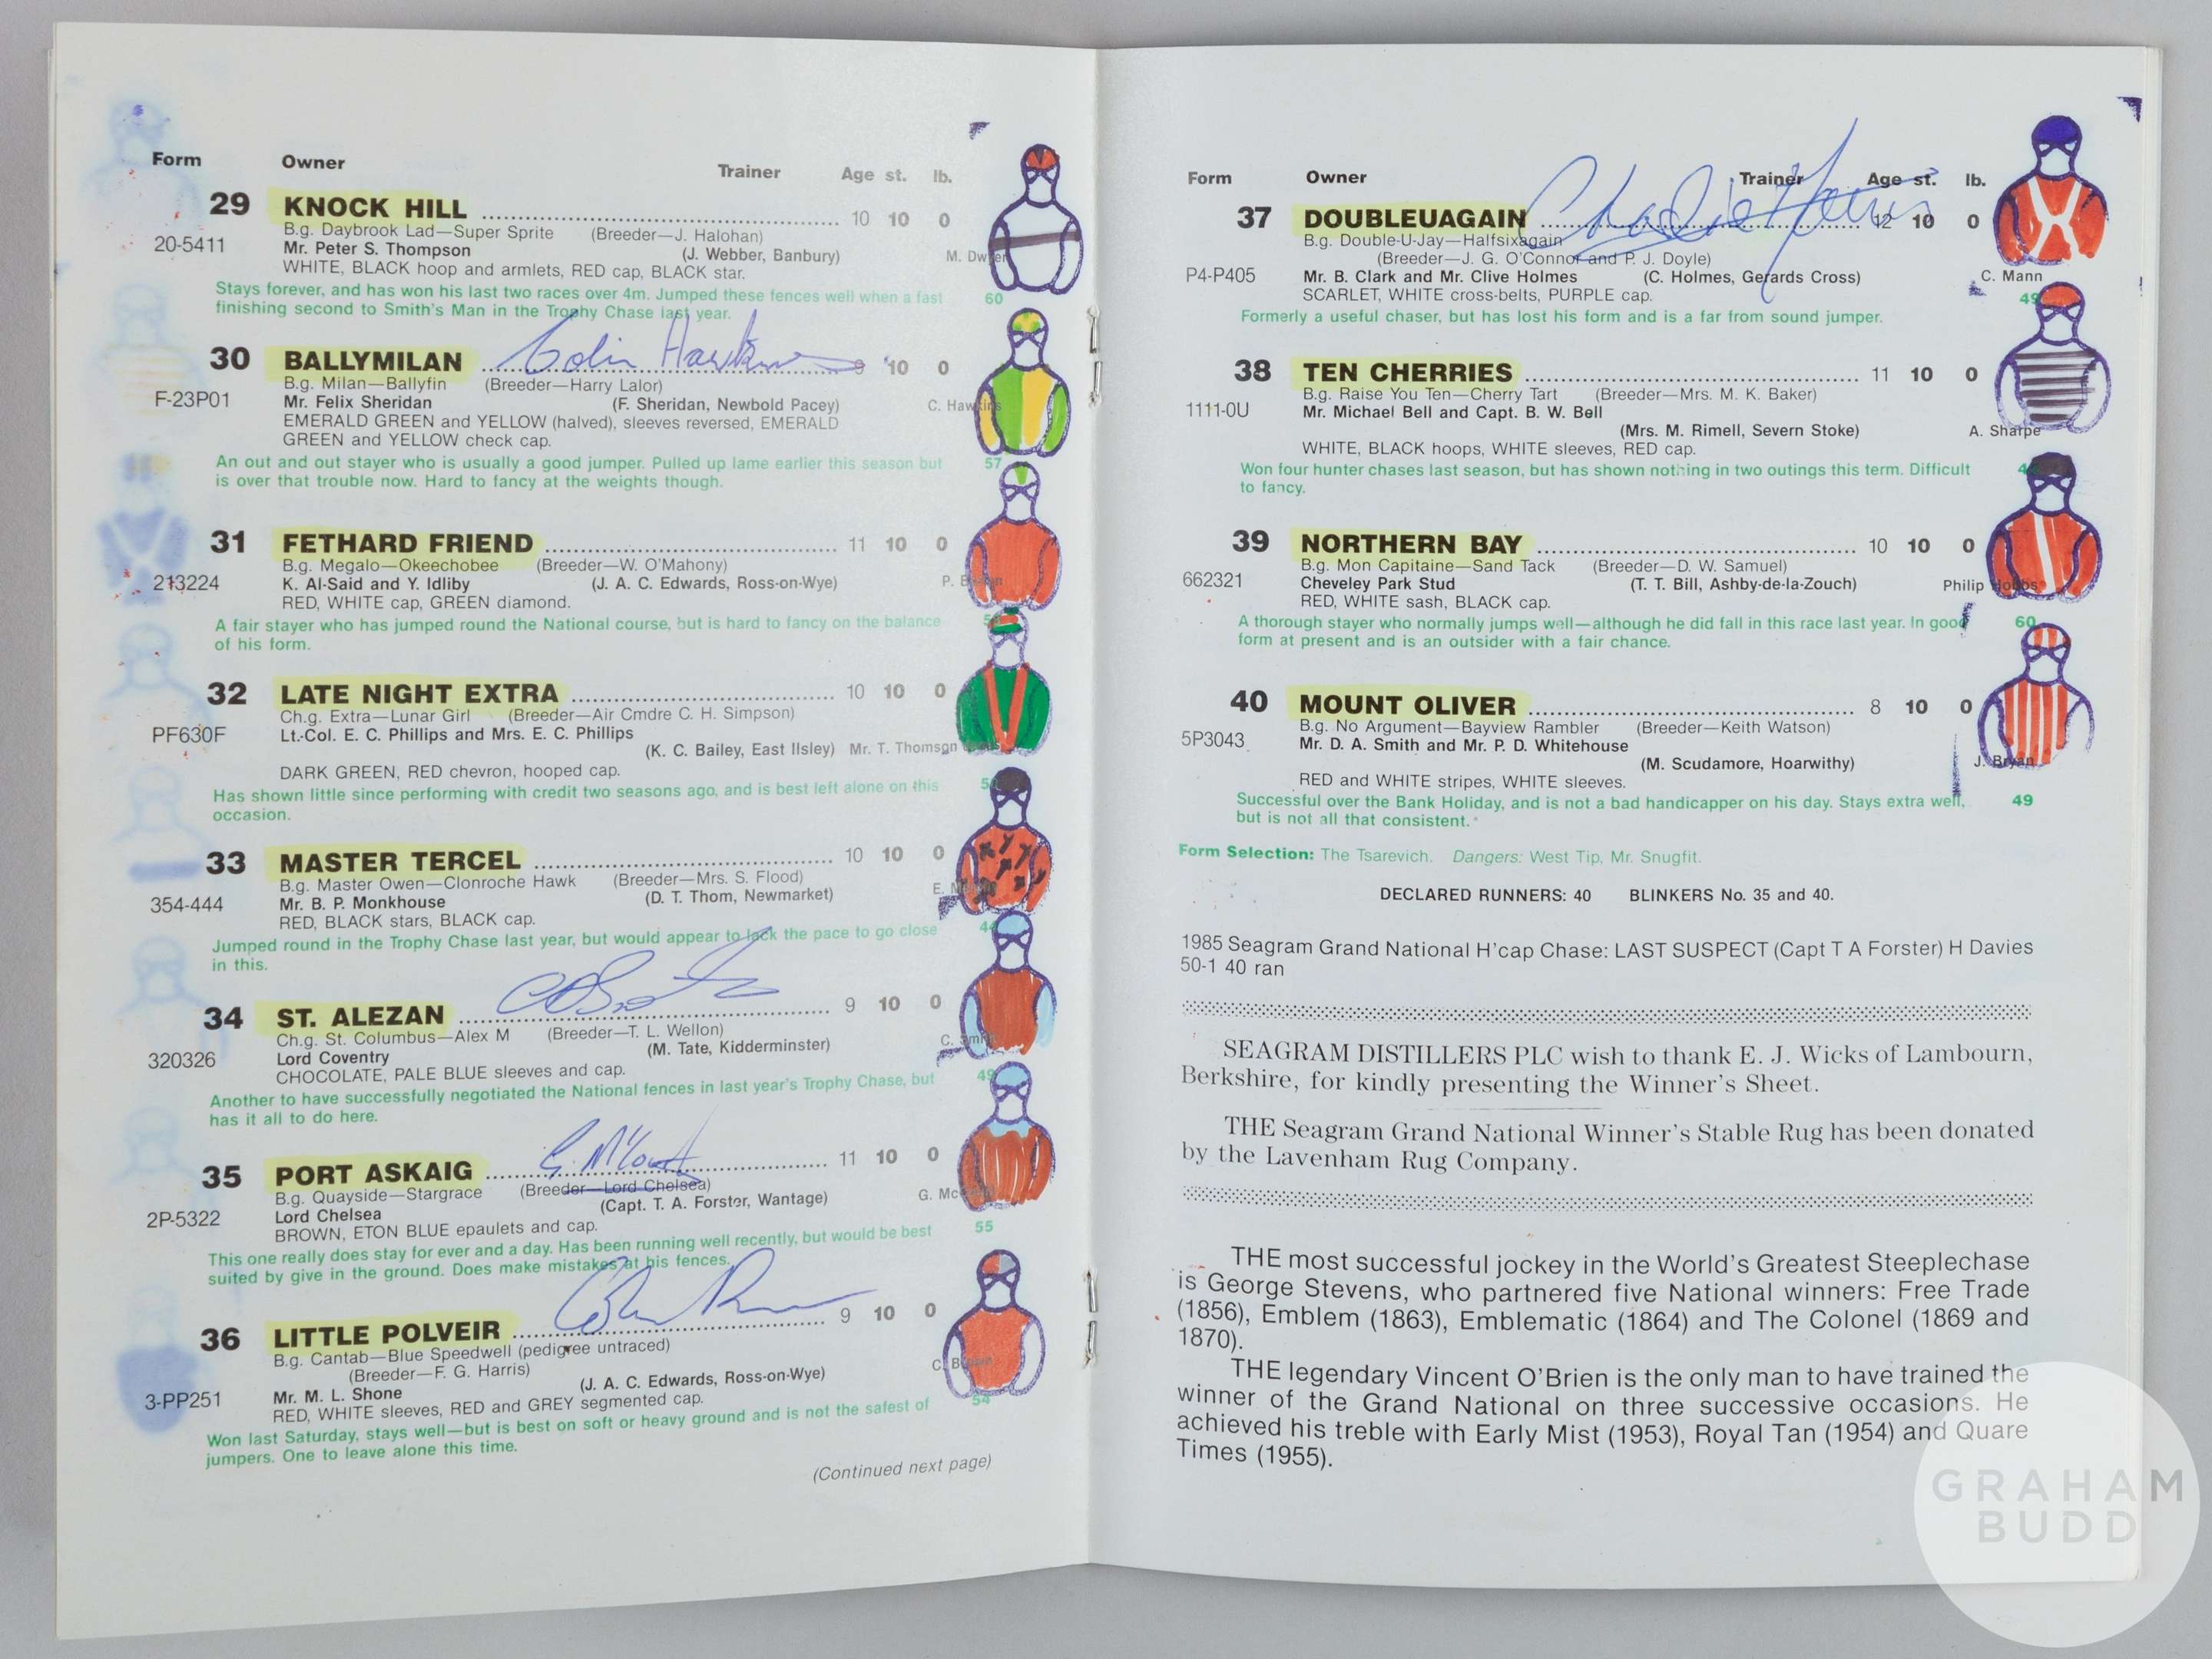 Form Owner Trainer Age st. lb.
29 KNOCK HILL 10 10 0
B.g. Daybrook Lad—Super Sprite (Breeder—J. Halohan)
20-5411 Mr. Peter S. Thompson (J. Webber, Banbury) M. Dwyer
WHITE, BLACK hoop and armlets, RED cap, BLACK star.
Stays forever, and has won his last two races over 4m. Jumped these fences well when a fast 60
finishing second to Smith's Man in the Trophy Chase last year.
Colin Hawkins
30 BALLYMILAN 9 10 0
B.g. Milan—Ballyfin (Breeder—Harry Lalor)
F-23P01 Mr. Felix Sheridan (F. Sheridan, Newbold Pacey) C. Hawkins
EMERALD GREEN and YELLOW (halved), sleeves reversed, EMERALD
GREEN and YELLOW check cap.
An out and out stayer who is usually a good jumper. Pulled up lame earlier this season but 57
is over that trouble now. Hard to fancy at the weights though.
31 FETHARD FRIEND 11 10 0
B.g. Megalo—Okeechobee (Breeder—W. O'Mahony)
213224 K. Al-Said and Y. Idliby (J. A. C. Edwards, Ross-on-Wye) P.
RED, WHITE cap, GREEN diamond.
A fair stayer who has jumped round the National course, but is hard to fancy on the balance
of his form.
32 LATE NIGHT EXTRA 10 10 0
Ch.g. Extra—Lunar Girl (Breeder—Air Cmdre C. H. Simpson)
PF630F Lt.-Col. E. C. Phillips and Mrs. E. C. Phillips
(K. C. Bailey, East Ilsley) Mr. T. Thomson
DARK GREEN, RED chevron, hooped cap.
Has shown little since performing with credit two seasons ago, and is best left alone on this
occasion.
33 MASTER TERCEL 10 10 0
B.g. Master Owen—Clonroche Hawk (Breeder—Mrs. S. Flood)
354-444 Mr. B. P. Monkhouse (D. T. Thom, Newmarket) E.
RED, BLACK stars, BLACK cap.
Jumped round in the Trophy Chase last year, but would appear to lack the pace to go close
in this.
34 ST. ALEZAN 9 10 0
Ch.g. St. Columbus—Alex M (Breeder—T. L. Wellon)
320326 Lord Coventry (M. Tate, Kidderminster) C. Smith
CHOCOLATE, PALE BLUE sleeves and cap.
Another to have successfully negotiated the National fences in last year's Trophy Chase, but 49
has it all to do here.
35 PORT ASKAIG 11 10 0
B.g. Quayside—Stargrace (Breeder—Lord Chelsea)
2P-5322 Lord Chelsea (Capt. T. A. Forster, Wantage) G.
BROWN, ETON BLUE epaulets and cap.
This one really does stay for ever and a day. Has been running well recently, but would be best 55
suited by give in the ground. Does make mistakes at his fences.
36 LITTLE POLVEIR 9 10 0
B.g. Cantab—Blue Speedwell (pedigree untraced)
(Breeder—F. G. Harris)
3-PP251 Mr. M. L. Shone (J. A. C. Edwards, Ross-on-Wye) C. Brown
RED, WHITE sleeves, RED and GREY segmented cap.
Won last Saturday, stays well—but is best on soft or heavy ground and is not the safest of 54
jumpers. One to leave alone this time.
(Continued next page)
Form Owner Trainer Age st. lb.
37 DOUBLEUAGAIN 12 10 0
B.g. Double-U-Jay—Halfsixagain
(Breeder—J. G. O'Connor and P. J. Doyle)
P4-P405 Mr. B. Clark and Mr. Clive Holmes (C. Holmes, Gerards Cross) C. Mann
SCARLET, WHITE cross-belts, PURPLE cap. 49
Formerly a useful chaser, but has lost his form and is a far from sound jumper.
38 TEN CHERRIES 11 10 0
B.g. Raise You Ten—Cherry Tart (Breeder—Mrs. M. K. Baker)
1111-0U Mr. Michael Bell and Capt. B. W. Bell
(Mrs. M. Rimell, Severn Stoke) A. Sharpe
WHITE, BLACK hoops, WHITE sleeves, RED cap.
Won four hunter chases last season, but has shown nothing in two outings this term. Difficult
to fancy.
39 NORTHERN BAY 10 10 0
B.g. Mon Capitaine—Sand Tack (Breeder—D. W. Samuel)
662321 Cheveley Park Stud (T. T. Bill, Ashby-de-la-Zouch) Philip Hobbs
RED, WHITE sash, BLACK cap.
A thorough stayer who normally jumps well—although he did fall in this race last year. In good 60
form at present and is an outsider with a fair chance.
40 MOUNT OLIVER 8 10 0
B.g. No Argument—Bayview Rambler (Breeder—Keith Watson)
5P3043 Mr. D. A. Smith and Mr. P. D. Whitehouse
(M. Scudamore, Hoarwithy) J. Bryan
RED and WHITE stripes, WHITE sleeves.
Successful over the Bank Holiday, and is not a bad handicapper on his day. Stays extra well, 49
but is not all that consistent.
Form Selection: The Tsarevich. Dangers: West Tip, Mr. Snugfit.
DECLARED RUNNERS: 40 BLINKERS No. 35 and 40.
1985 Seagram Grand National H'cap Chase: LAST SUSPECT (Capt T A Forster) H Davies
50-1 40 ran
SEAGRAM DISTILLERS PLC wish to thank E. J. Wicks of Lambourn,
Berkshire, for kindly presenting the Winner's Sheet.
THE Seagram Grand National Winner's Stable Rug has been donated
by the Lavenham Rug Company.
THE most successful jockey in the World's Greatest Steeplechase
is George Stevens, who partnered five National winners: Free Trade
(1856), Emblem (1863), Emblematic (1864) and The Colonel (1869 and
1870).
THE legendary Vincent O'Brien is the only man to have trained the
winner of the Grand National on three successive occasions. He
achieved his treble with Early Mist (1953), Royal Tan (1954) and Quare
Times (1955).
GRAHAM
BUDD